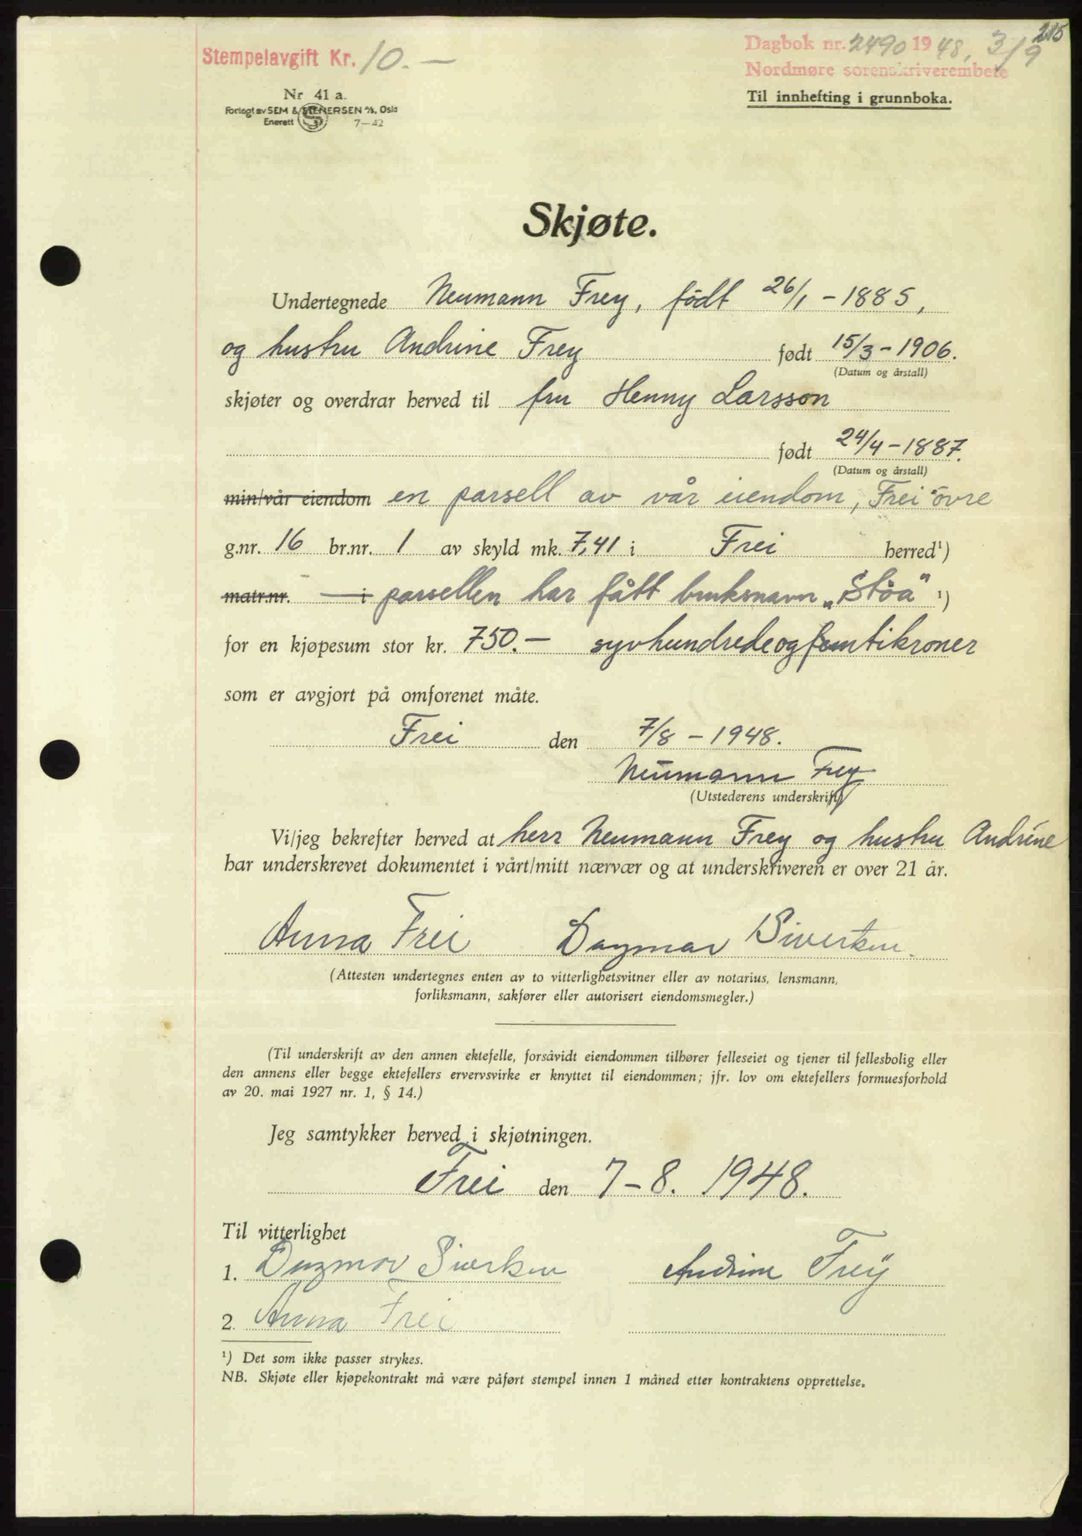 215
Stempelavgift Kr. 10.—
Dagbok nr. 2490 1948, 3/9
Nordmøre sorenskriverembete
Nr. 41 a.
Til innhefting i grunnboka.
Forlagt av SEM & STENERSEN A/S, Oslo
Enerett S 7—42
Skjøte.
Undertegnede Neumann Frey, født 26/1 - 1885,
og hustru Andrine Frey født 15/3 - 1906.
(Datum og årstall)
skjøter og overdrar herved til fru Henny Larsson
født 24/4 - 1887.
(Datum og årstall)
min/vår eiendom en parsell av vår eiendom, Frei øvre
g.nr. 16 br.nr. 1 av skyld mk. 7,41 i Frei herred¹)
matr.nr. — i parsellen har fått bruksnavn „Støa" ¹)
for en kjøpesum stor kr. 750.— syvhundredeogfemtikroner
som er avgjort på omforenet måte.
Frei den 7/8 - 1948.
Neumann Frey
(Utstederens underskrift)
Vi/jeg bekrefter herved at herr Neumann Frey og hustru Andrine
har underskrevet dokumentet i vårt/mitt nærvær og at underskriveren er over 21 år.
Anna Frei Dagmar Sivertsen.
(Attesten undertegnes enten av to vitterlighetsvitner eller av notarius, lensmann,
forliksmann, sakfører eller autorisert eiendomsmegler.)
(Til underskrift av den annen ektefelle, forsåvidt eiendommen tilhører felleseiet og tjener til fellesbolig eller
den annens eller begge ektefellers ervervsvirke er knyttet til eiendommen; jfr. lov om ektefellers formuesforhold
av 20. mai 1927 nr. 1, § 14.)
Jeg samtykker herved i skjøtningen.
Frei den 7-8. 1948.
Til vitterlighet
1. Dagmar Sivertsen Andrine Frey
2. Anna Frei
¹) Det som ikke passer strykes.
NB. Skjøte eller kjøpekontrakt må være påført stempel innen 1 måned etter kontraktens opprettelse.